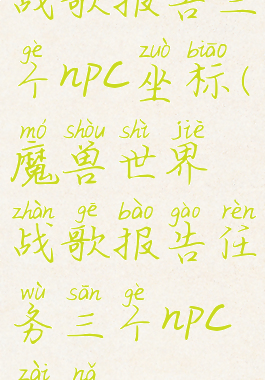 战歌报告三
gè zuò biāo
个npc坐标(
mó shòu shì jiè
魔兽世界
zhàn gē bào gào rèn
战歌报告任
wù sān gè
务三个npc
zài nǎ